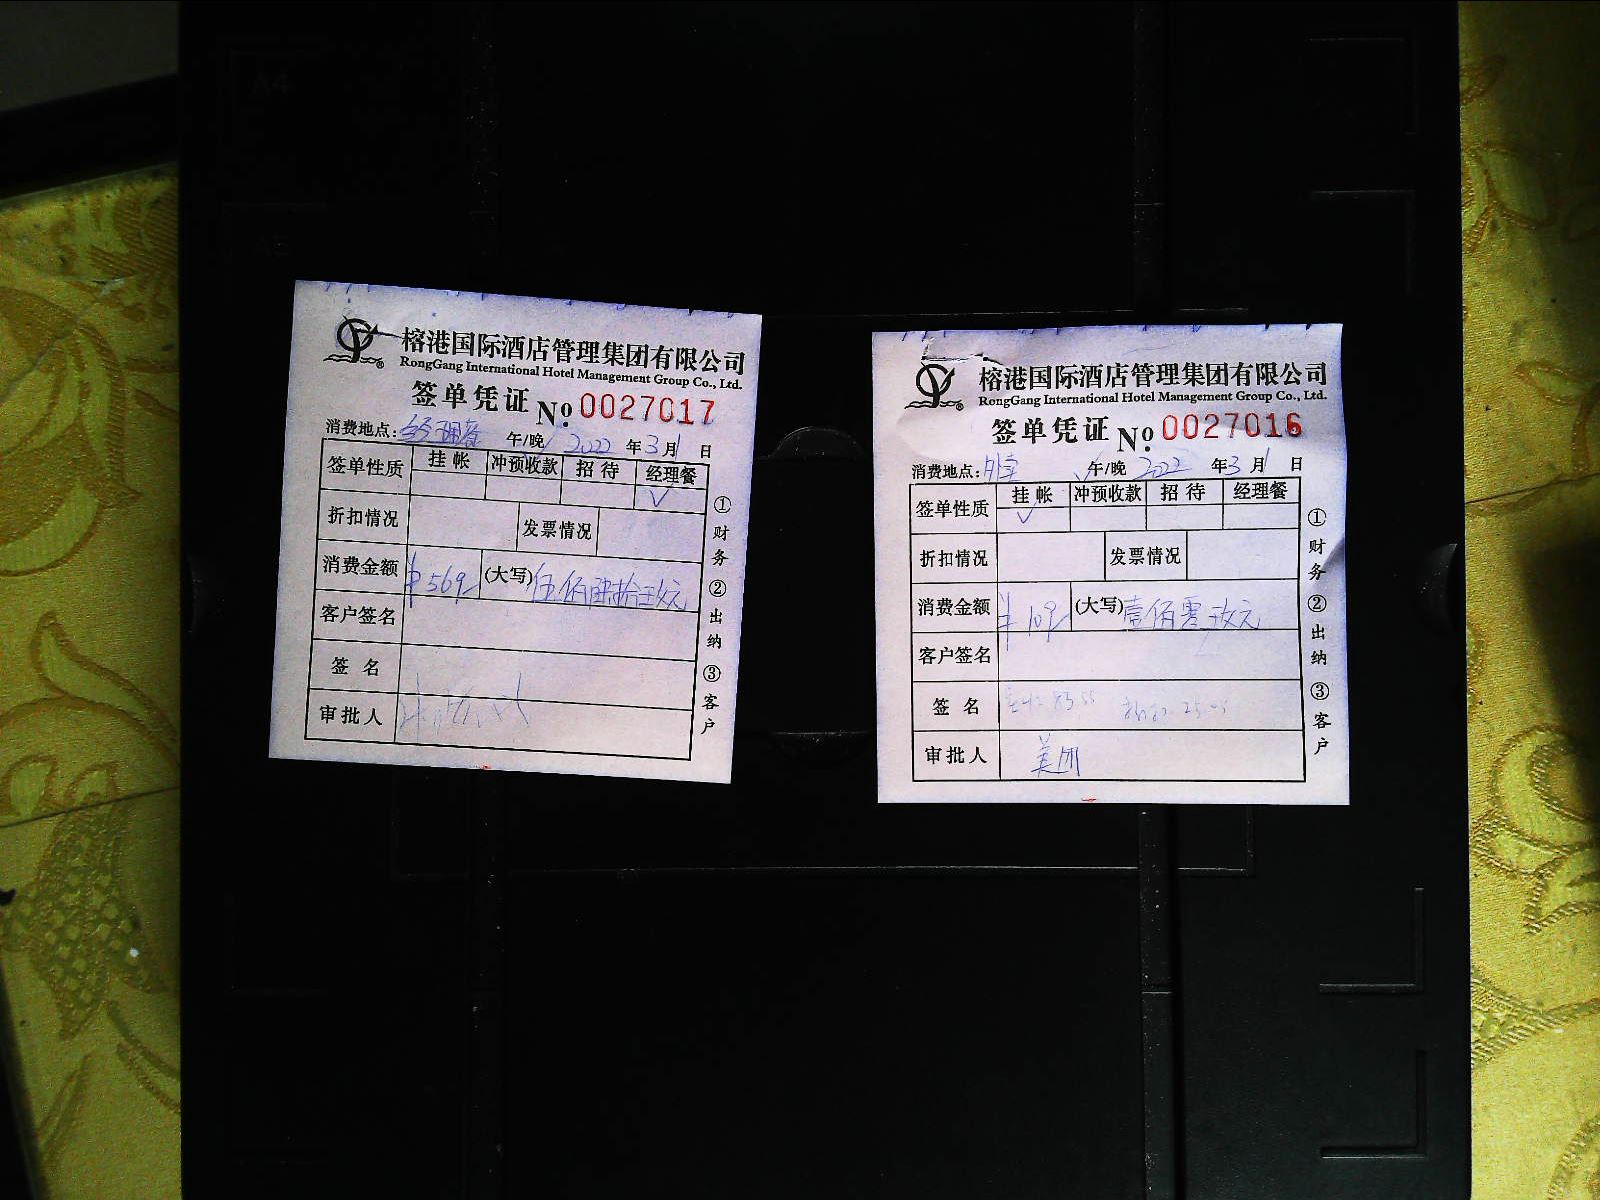 榕港国际酒店管理集团有限公司
RongGang International Hotel Management Group Co., Ltd.
签单凭证 No 0027017
消费地点: 经理餐 午/晚 2022 年 3 月 1 日
签单性质 挂帐 冲预收款 招待 经理餐
√
折扣情况 发票情况
消费金额 ¥569 (大写) 伍佰陆拾玖元
客户签名
签名
审批人
①财务 ②出纳 ③客户
榕港国际酒店管理集团有限公司
RongGang International Hotel Management Group Co., Ltd.
签单凭证 No 0027016
消费地点: 午/晚 2022 年 3 月 1 日
签单性质 挂帐 冲预收款 招待 经理餐
√
折扣情况 发票情况
消费金额 ¥109 (大写) 壹佰零玖元
客户签名
签名 83.55
审批人 美团
①财务 ②出纳 ③客户
A4